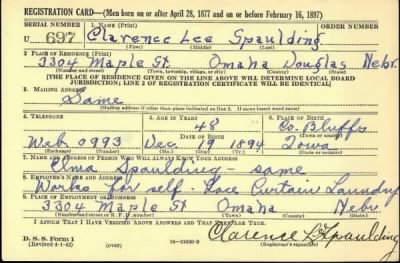 REGISTRATION CARD—(Men born on or after April 28, 1877 and on or before February 16, 1897)
SERIAL NUMBER 1. NAME (Print) ORDER NUMBER
U 697 Clarence Lee Spaulding
(First) (Middle) (Last)
2. PLACE OF RESIDENCE (Print)
3304 Maple St Omaha Douglas Nebr.
(Number and street) (Town, township, village, or city) (County) (State)
[THE PLACE OF RESIDENCE GIVEN ON THE LINE ABOVE WILL DETERMINE LOCAL BOARD
JURISDICTION; LINE 2 OF REGISTRATION CERTIFICATE WILL BE IDENTICAL]
3. MAILING ADDRESS
Same
[Mailing address if other than place indicated on line 2. If same insert word same]
4. TELEPHONE 5. AGE IN YEARS 6. PLACE OF BIRTH
48 Co. Bluffs
DATE OF BIRTH
Web 0993 Dec 19 1894 Iowa
(Exchange) (Number) (Mo.) (Day) (Yr.) (State or country)
7. NAME AND ADDRESS OF PERSON WHO WILL ALWAYS KNOW YOUR ADDRESS
Elma Spaulding - same
8. EMPLOYER'S NAME AND ADDRESS
Works for self - Lace Curtain Laundry
9. PLACE OF EMPLOYMENT OR BUSINESS
3304 Maple St Omaha Nebr
(Number and street or R. F. D. number) (Town) (County) (State)
I AFFIRM THAT I HAVE VERIFIED ABOVE ANSWERS AND THAT THEY ARE TRUE.
D. S. S. Form 1
(Revised 4-1-42) (over) 16—21630-2 Clarence L Spaulding
(Registrant's signature)